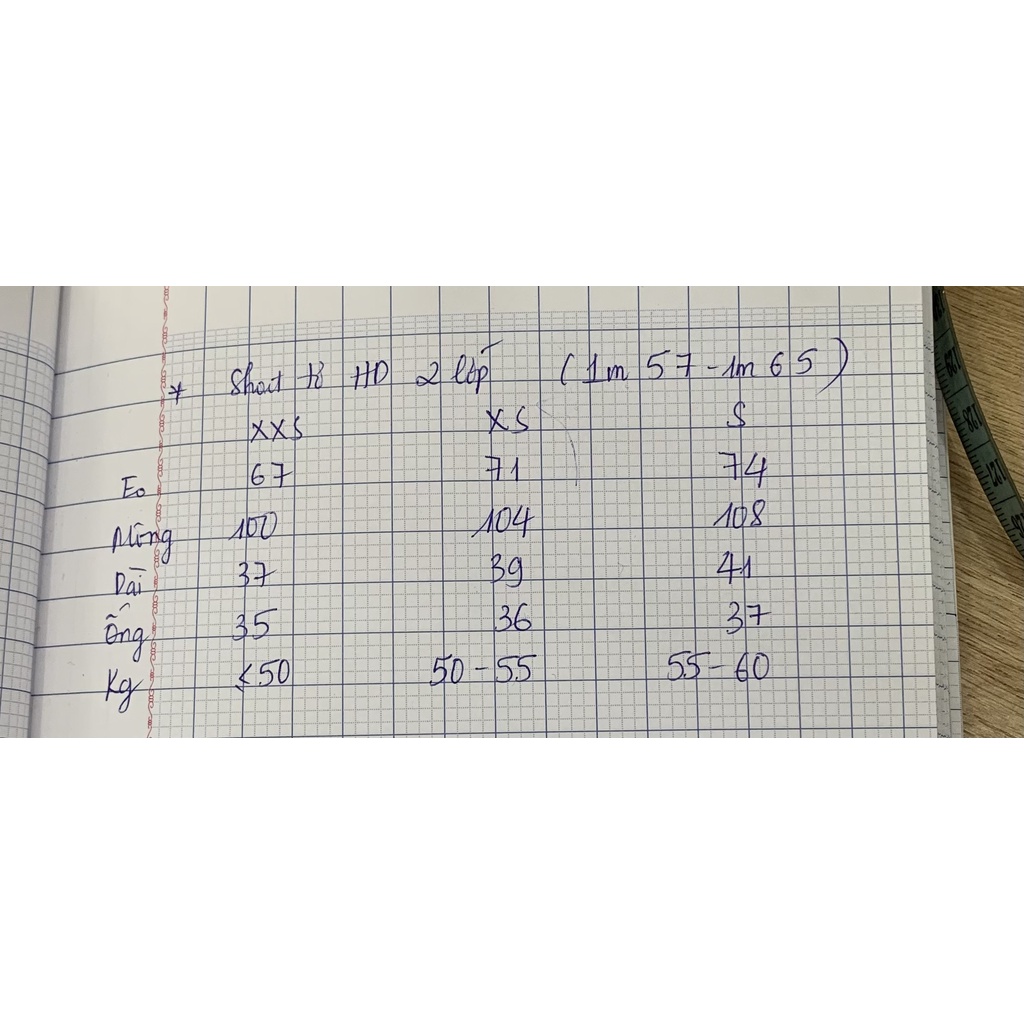 * Short HD 2 lớp (1m 57 - 1m 65)
XXS XS S
Eo 67 71 74
Mông 100 104 108
Dài 37 39 41
Ống 35 36 37
Kg <50 50 - 55 55 - 60